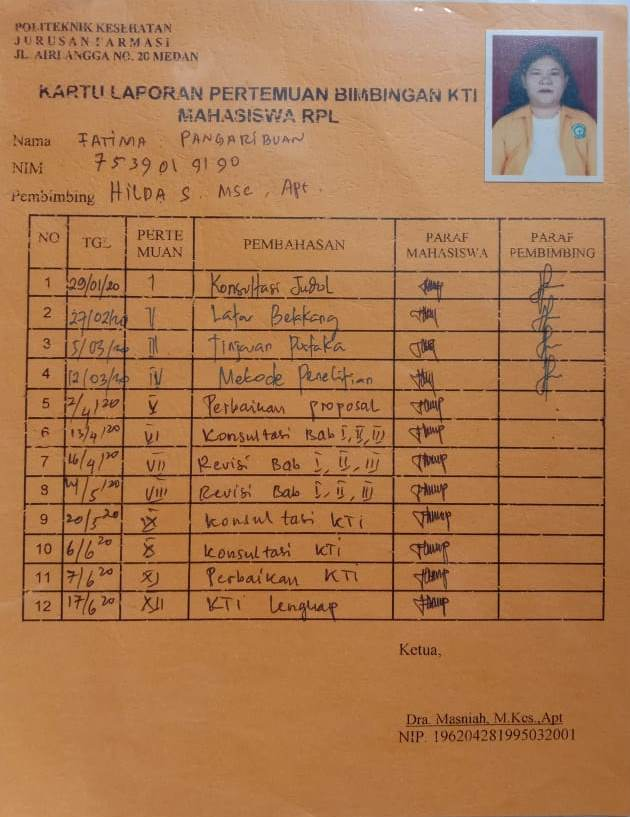 POLITEKNIK KESEHATAN
JURUSAN FARMASI
JL. AIRLANGGA NO. 20 MEDAN
KARTU LAPORAN PERTEMUAN BIMBINGAN KTI
MAHASISWA RPL
Nama FATIMA PANGARIBUAN
NIM 7539019190
Pembimbing HILDA S. MSc, Apt.
NO TGL PERTE MUAN PEMBAHASAN PARAF MAHASISWA PARAF PEMBIMBING
1 29/01/20 I Konsultasi Judul
2 27/02/20 II Latar Belakang
3 5/03/20 III Tinjauan Pustaka
4 12/03/20 IV Metode Penelitian
5 2/4/20 V Perbaikan proposal
6 13/4/20 VI Konsultasi Bab I, II, III
7 16/4/20 VII Revisi Bab I, II, III
8 /5/20 VIII Revisi Bab I, II, III
9 20/5 20 IX Konsultasi KTI
10 6/6 20 X Konsultasi KTI
11 7/6 20 XI Perbaikan KTI
12 17/6 20 XII KTI Lengkap
Ketua,
Dra. Masniah, M.Kes.,Apt
NIP. 196204281995032001